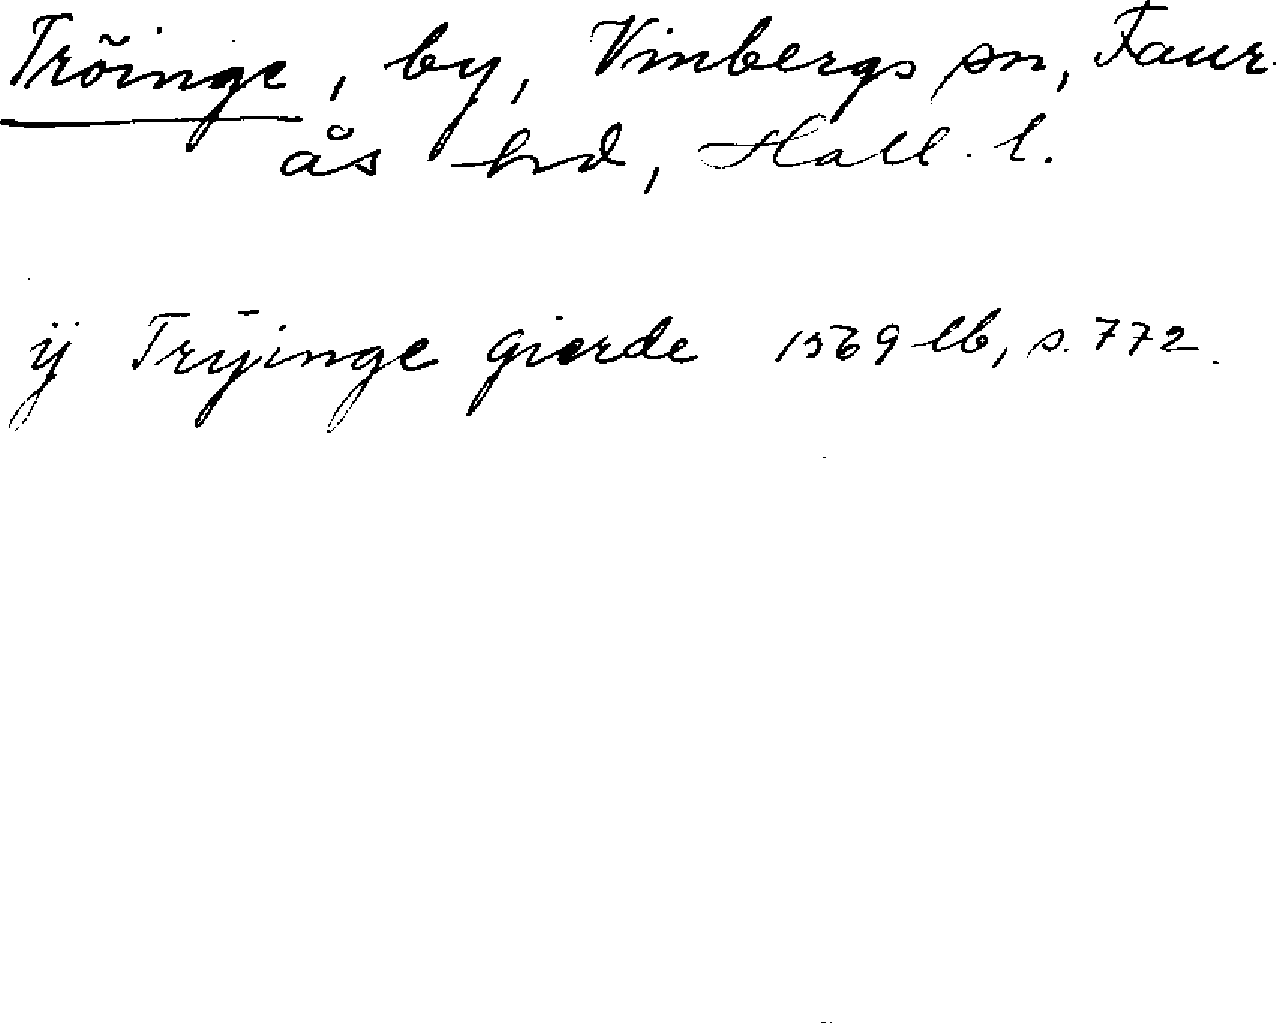 Tröinge, by, Vinbergs sn, Faur-
ås hd, Hall. l.
ij Trÿinge gierde 1569 lb, s. 772.